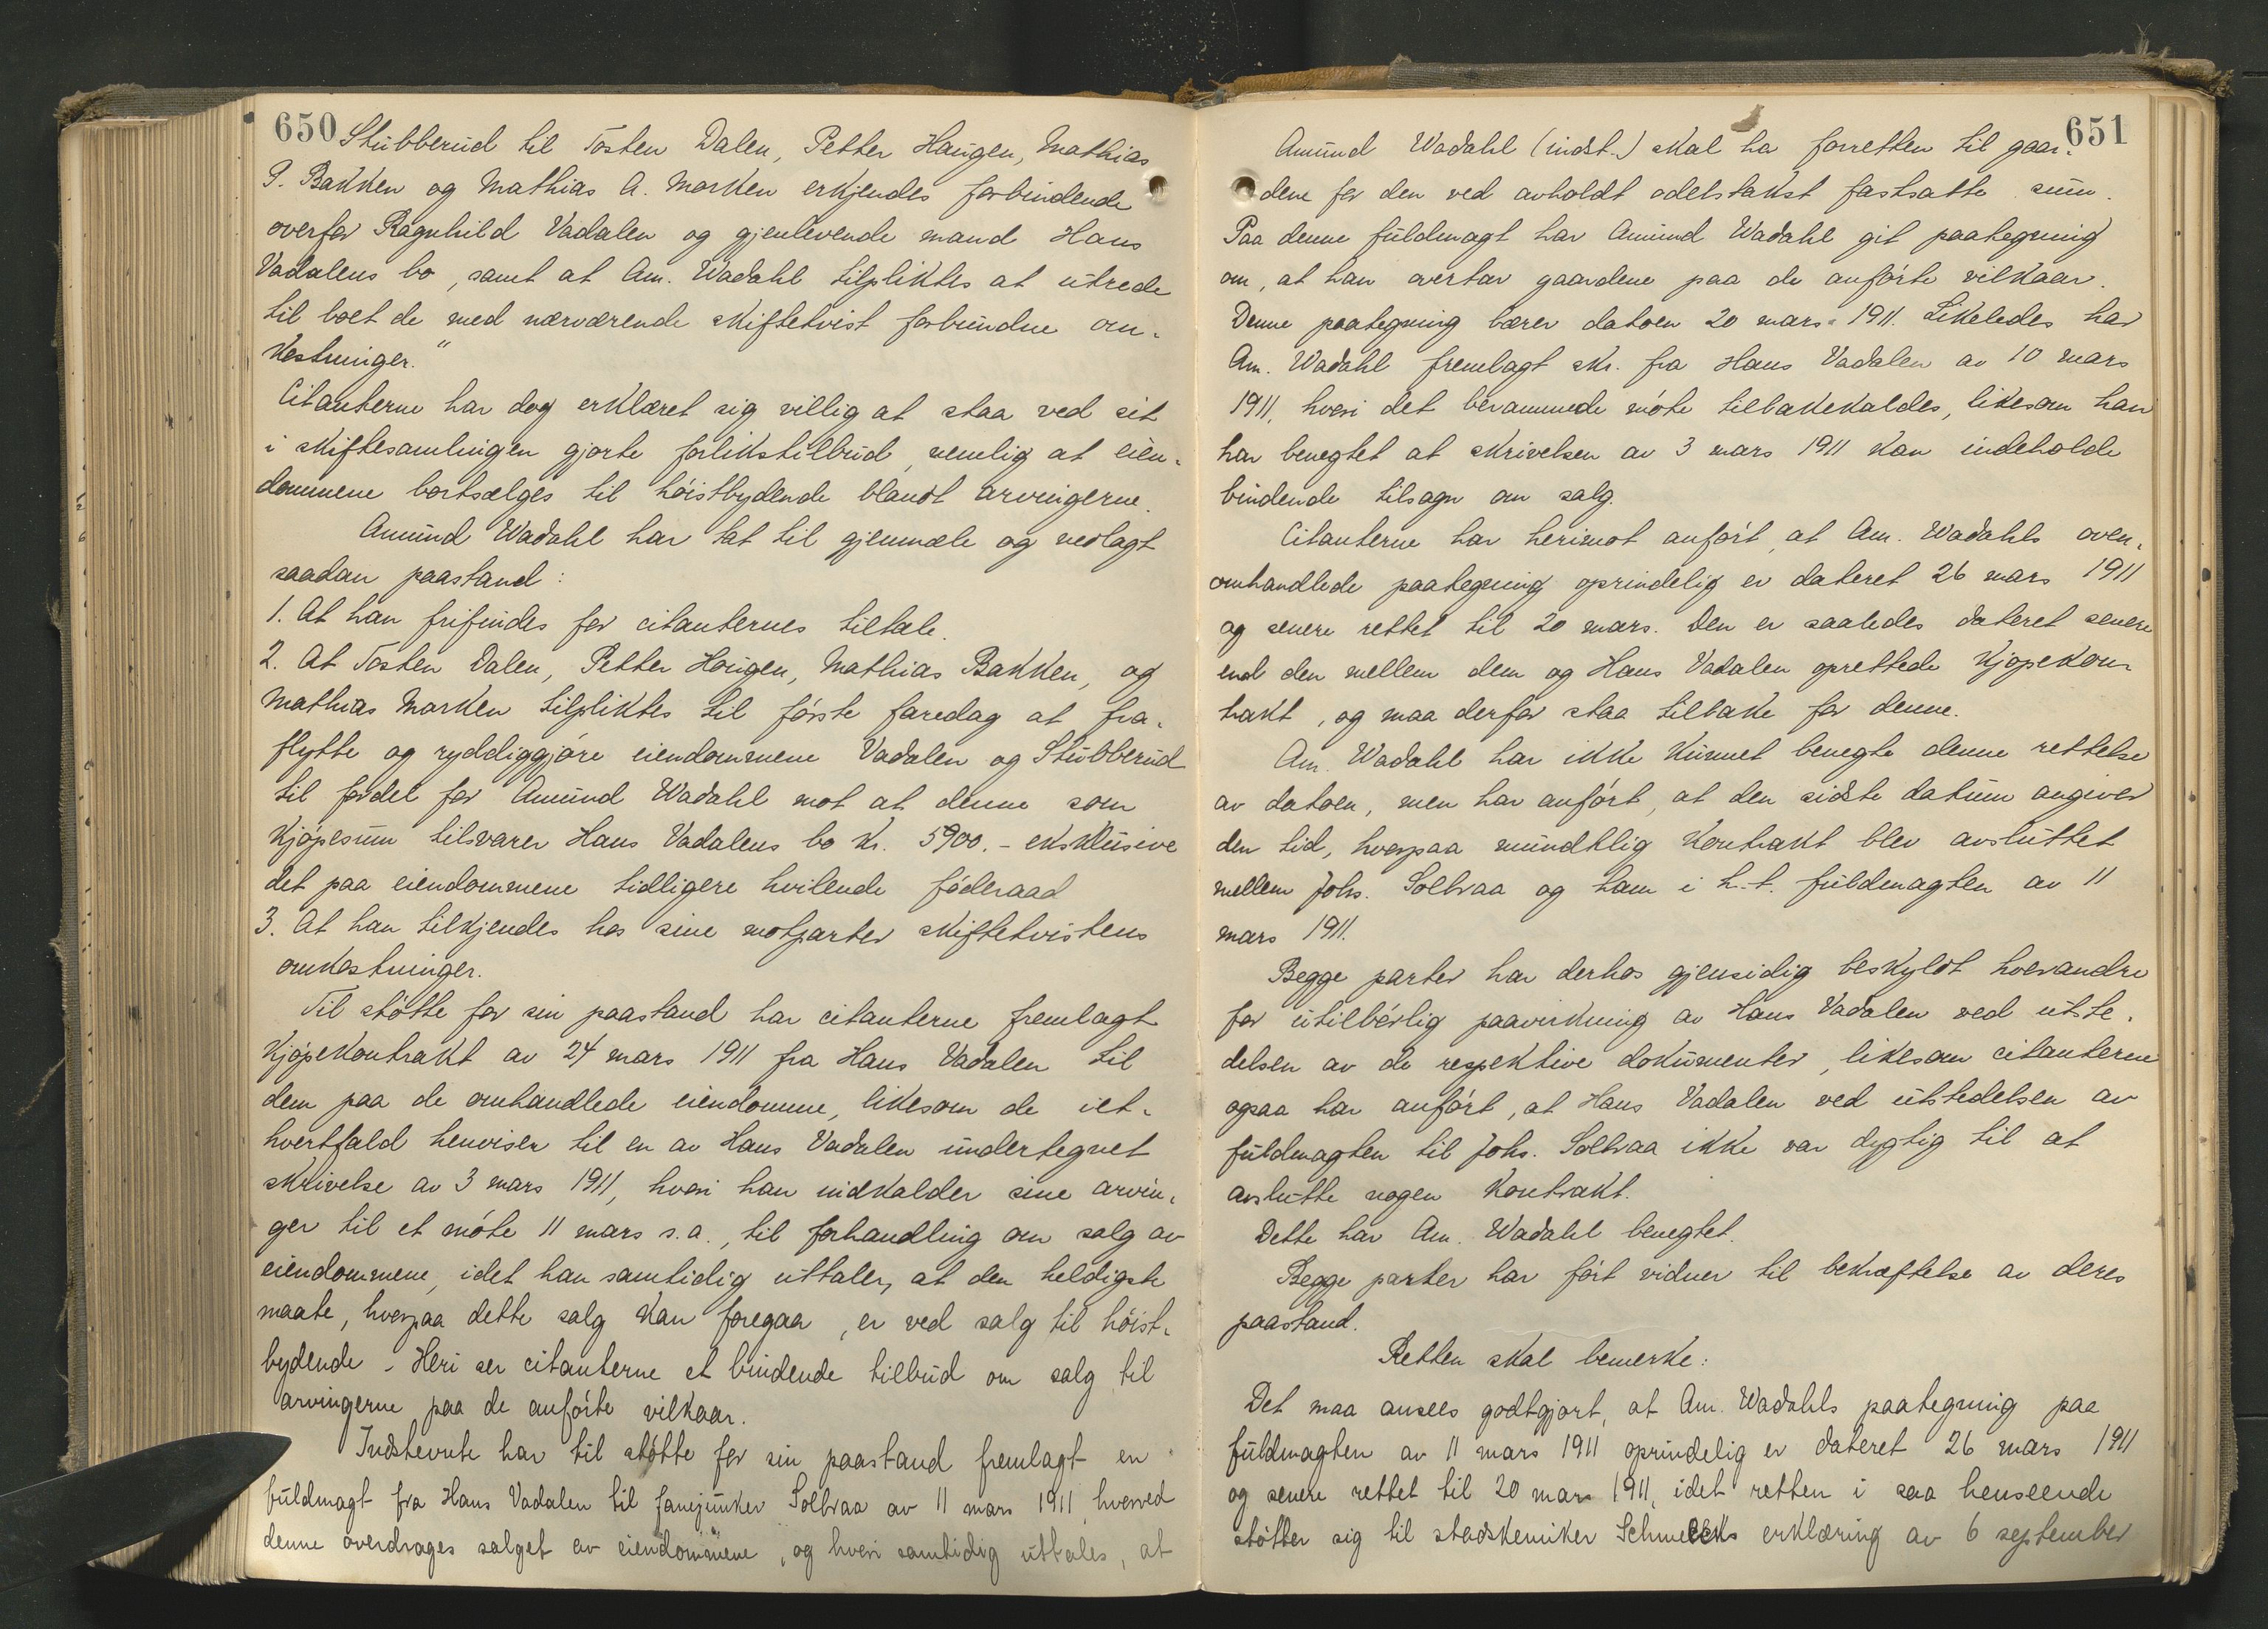 650
Stubberud til Tosten Dalen, Petter Haugen, Mathias
P. Bakken og Mathias A. Marken erkjendes forbindende
overfor Ragnhild Vadalen og gjenlevende mand Hans
Vadalens bo, samt at Am. Wadahl tilpliktes at utrede
til boet de med nærværende skiftetvist forbundne om-
kostninger."
Citanterne har dog erklæret sig villig at staa ved sit
i skiftesamlingen gjorte forlikstilbud, nemlig at eien-
dommene bortsælges til høistbydende blandt arvingerne.
Amund Wadahl har tat til gjenmæle og nedlagt
saadan paastand:
1. At han frifindes for citanternes tiltale.
2. At Tosten Dalen, Petter Haugen, Mathias Bakken, og
Mathias Marken tilpliktes til første faredag at fra-
flytte og ryddiggjøre eiendommene Vadalen og Stubberud
til fordel for Amund Wadahl mot at denne som
kjøpesum tilsvarer Hans Vadalens bo kr. 5900.- eksklusive
det paa eiendommene tidligere hvilende føderaad
3. At han tilkjendes hos sine motparter skiftetvistens
omkostninger.
Til støtte for sin paastand har citanterne fremlagt
kjøpekontrakt av 24 mars 1911 fra Hans Vadalen til
dem paa de omhandlede eiendomme, likesom de iet-
hvertfald henviser til en av Hans Vadalen undertegnet
skrivelse av 3 mars 1911, hvori han indkalder sine arvin-
ger til et møte 11 mars s.a., til forhandling om salg av
eiendommene, idet han samtidig uttaler, at den heldigste
maate, hvorpaa dette salg kan foregaa, er ved salg til høist-
bydende - Heri ser citanterne et bindende tilbud om salg til
arvingerne paa de anførte vilkaar.
Indstevnte har til støtte for sin paastand fremlagt en
fuldmagt fra Hans Vadalen til fanejunker Solbraa av 11 mars 1911, hvorved
denne overdrages salget av eiendommene, og hvori samtidig uttales, at
651
Amund Wadahl (indst.) skal ha forretten til gaar-
dene for den ved avholdt odelstakst fastsatte sum.
Paa denne fuldmagt har Amund Wadahl git paategning
om, at han overtar gaardene paa de anførte vilkaar.
Denne paategning bærer datoen 20 mars 1911. Likeledes har
Am. Wadahl fremlagt skr. fra Hans Vadalen av 10 mars
1911, hvori det berammede møte tilbakekaldes, likesom han
har benegtet at skrivelsen av 3 mars 1911 kan indeholde
bindende tilsagn om salg.
Citanterne har herimot anført, at Am. Wadahls oven-
omhandlede paategning oprindelig er dateret 26 mars 1911
og senere rettet til 20 mars. Den er saaledes dateret senere
end den mellem dem og Hans Vadalen oprettede kjøpekon-
trakt, og maa derfor staa tilbake for denne.
Am. Wadahl har ikke kunnet benegte denne rettelse
av datoen, men har anført, at den sidste datum angiver
den tid, hvorpaa mundtlig kontrakt blev avsluttet
mellem Johs. Solbraa og ham i h.t. fuldmagten av 11
mars 1911.
Begge parter har derhos gjensidig beskyldt hverandre
for utilbørlig paavirkning av Hans Vadalen ved utste-
delsen av de respektive dokumenter, likesom citanterne
ogsaa har anført, at Hans Vadalen ved utstedelsen av
fuldmagten til Johs. Solbraa ikke var dygtig til at
avslutte nogen kontrakt.
Dette har Am. Wadahl benegtet.
Begge parter har ført vidner til bekræftelse av deres
paastand.
Retten skal bemerke:
Det maa ansees godtgjort, at Am. Wadahls paategning paa
fuldmagten av 11 mars 1911 oprindelig er dateret 26 mars 1911
og senere rettet til 20 mars 1911, idet retten i saa henseende
støtter sig til stadskemiker Schmelcks erklæring av 6 september